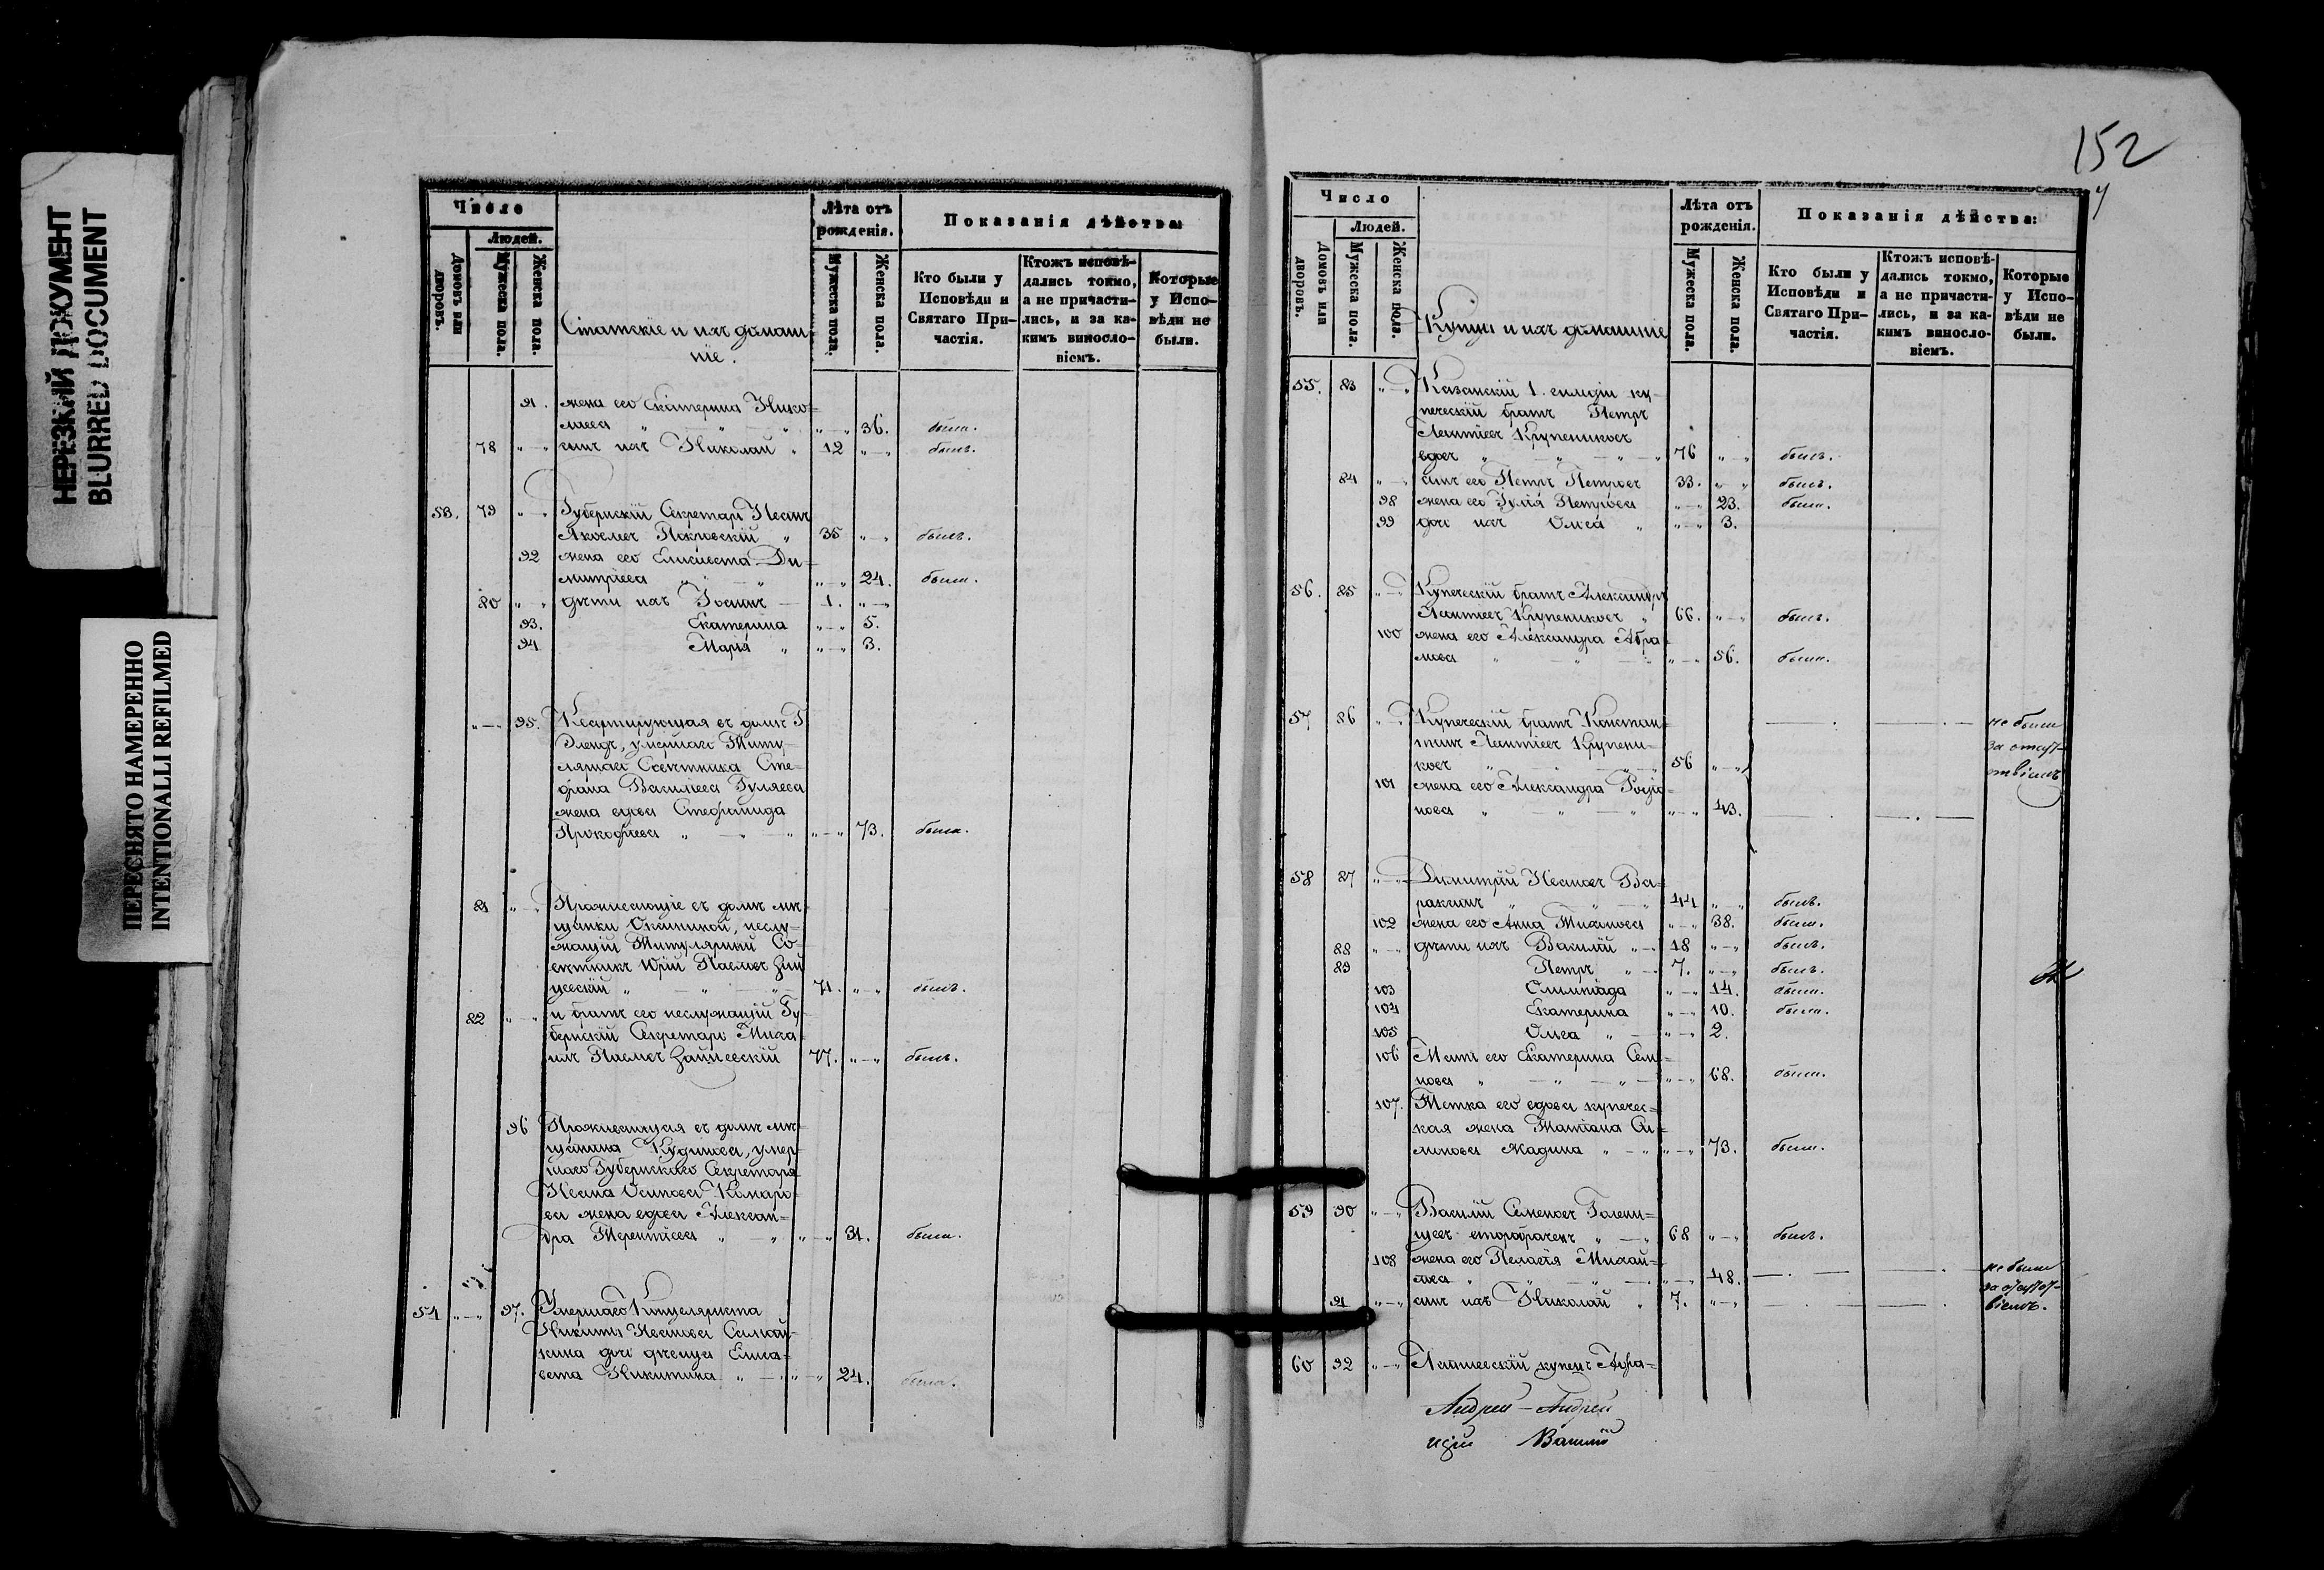 НЕРЕЗКИЙ ДОКУМЕНТ
BLURRED DOCUMENT
ПЕРЕСНЯТО НАМЕРЕННО
INTENTIONALLI REFILMED
Число
Людей.
Домовъ или дворовъ.
Мужеска пола.
Женска пола.
Статскіе и ихъ домаш
ніе.
Лѣта отъ
рожденія.
Мужеска пола.
Женска пола.
Показанія дѣйства:
Кто были у
Исповѣди и
Святаго При-
частія.
Ктожъ исповѣ-
дались токмо,
а не причасти-
лись, и за ка-
кимъ винosло-
віемъ.
Которые
у Испо-
вѣди не
были.
91. жена его Екатерина Нико=
лаева 36. была.
78 сынъ ихъ Николай 12 былъ.
53. 79 Губернскій Секретарь Иванъ
Яковлевъ Покровскій 35 былъ.
92 жена его Елисавета Ди=
митріева 24. была.
80 дѣти ихъ Іоаннъ 1.
93. Екатерина 5.
94 Марія 3.
95. Квартирующая въ домѣ Г.
умершаго Титу-
лярнаго Совѣтника Сте-
фана Васильева Гуляева
жена вдова Стефанида
Прокофьева 73. была.
81 Проживающіе въ домѣ мѣ-
щанки неслу-
жащій Титулярный Со-
вѣтникъ Юрій Павловъ
71. былъ.
82 и братъ его неслужащій Гу-
бернскій Секретарь Миха-
илъ Павловъ 77. былъ.
96 Проживающая въ домѣ мѣ-
щанина Кудинова, умер-
шаго Губернскаго Секретаря
Ивана Осипова Комаро-
ва жена вдова Алексан=
дра Терентіева 31. была.
54 97. Умершаго Канцеляриста
Никиты Иванова
дочь дѣвица Елиса=
вета Никитина 24. была.
152
Число
Людей.
Домовъ или дворовъ.
Мужеска пола.
Женска пола.
Купцы и ихъ домашніе
Лѣта отъ
рожденія.
Мужеска пола.
Женска пола.
Показанія дѣйства:
Кто были у
Исповѣди и
Святаго При-
частія.
Ктожъ исповѣ-
дались токмо,
а не причасти-
лись, и за ка-
кимъ винosло-
віемъ.
Которые
у Испо-
вѣди не
были.
55. 83 Казанскій 1. гильдіи ку-
печескій братъ Петръ
Леонтьевъ Крупениковъ
вдовъ 76 былъ.
84 сынъ его Петръ Петровъ 33. былъ.
98 жена его Юлія Петрова 23. была.
99 дочь ихъ Ольга 3.
56. 85 Купеческій братъ Александръ
Леонтьевъ Крупениковъ 66. былъ.
100 жена его Александра Абра=
мова 56. была.
57 86 Купеческій братъ Констан=
тинъ Леонтьевъ Крупени=
ковъ 56
не были
за отсут-
ствіемъ
101 жена его Александра Родіо=
нова 43.
58 87 Димитрій Ивановъ Ва=
ракинъ 44 былъ.
102 жена его Анна Тихонова 38. была.
88 дѣти ихъ Василій 18 былъ.
89 Петръ 7. былъ.
103 Олимпіада 14. была.
104 Екатерина 10. была.
105 Ольга 2.
106 Мать его Екатерина Сем=
нова 68. была.
107. Тетка его вдова купечес=
кая жена Татіана Си=
монова Жадина 73. была.
59 90 Василій Семеновъ Голени=
щевъ второбрачнъ 68 былъ.
108 жена его Пелагія Михай=
лова 48.
не были
за отсутст-
віемъ.
91 сынъ ихъ Николай 7.
60 92 Лаишевскій купецъ
Андрей — Андрей
Василій